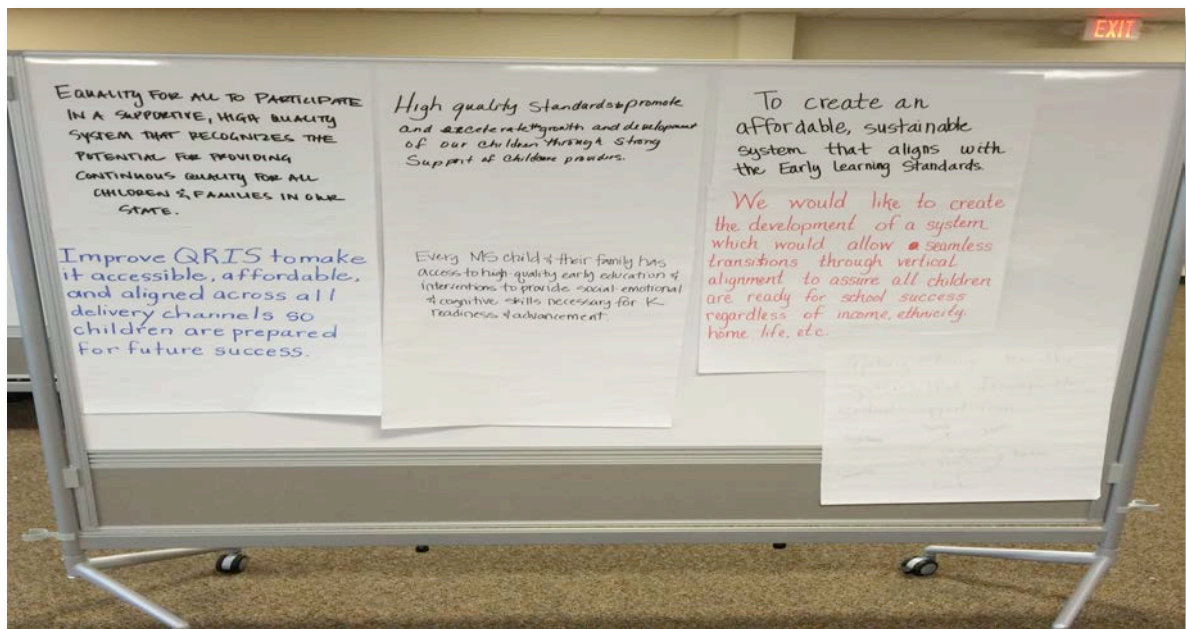 EXIT
EQUALITY FOR ALL TO PARTICIPATE
IN A SUPPORTIVE, HIGH QUALITY
SYSTEM THAT RECOGNIZES THE
POTENTIAL FOR PROVIDING
CONTINUOUS QUALITY FOR ALL
CHILDREN & FAMILIES IN OUR
STATE.
Improve QRIS to make
it accessible, affordable,
and aligned across all
delivery channels so
children are prepared
for future success.
High quality Standards to promote
and excelerate growth and development
of our children through strong
Support of Childcare providers.
Every MS child & their family has
access to high-quality early education &
interventions to provide social-emotional
& cognitive skills necessary for K
readiness & advancement.
To create an
affordable, sustainable
system that aligns with
the Early Learning Standards.
We would like to create
the development of a system
which would allow a seamless
transitions through vertical
alignment to assure all children
are ready for school success
regardless of income, ethnicity,
home life, etc.